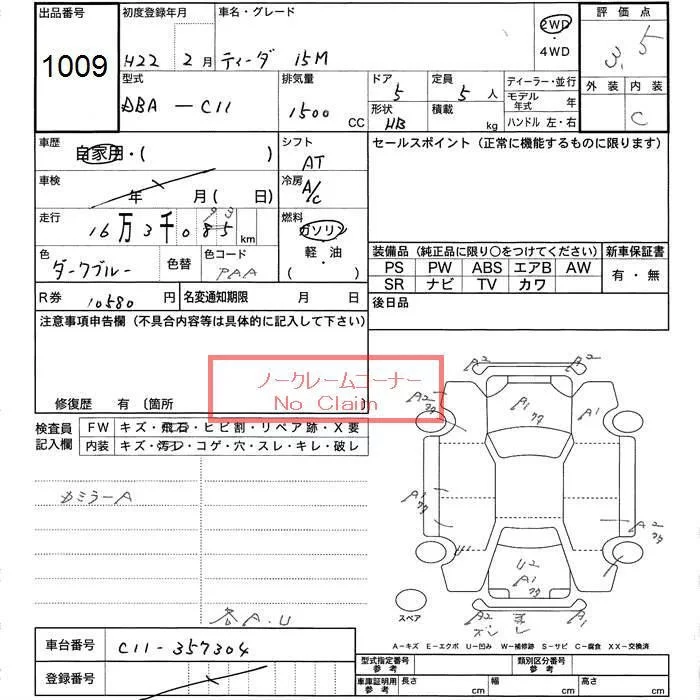 出品番号
1009
初度登録年月
H22 2月
車名・グレード
ティーダ 15M
2WD
・
4WD
評価点
3.5
外装 内装
C
型式
DBA-C11
排気量
1500 CC
ドア
5
定員
5人
形状
HB
積載
kg
ディーラー・並行
モデル年式 年
ハンドル 左・右
車歴
自家用・( )
シフト
AT
車検
年 月( 日)
冷房
A/C
走行
16万3千085 km
燃料
ガソリン
軽・油
( )
色
ダークブルー
色替
色コード
PAA
R券 10580 円
名変通知期限 月 日
セールスポイント(正常に機能するものに限ります)
装備品(純正品に限り○をつけてください)
新車保証書
PS PW ABS エアB AW
SR ナビ TV カワ
有・無
後日品
注意事項申告欄(不具合内容等は具体的に記入して下さい)
修復歴 有(箇所
ノークレームコーナー
No Claim
検査員
記入欄
FW キズ・飛石・ヒビ割・リペア跡・X要
内装 キズ・汚レ・コゲ・穴・スレ・キレ・破レ
カミラーA
各A.U
A2 A2
A2
ワク
A1
ワク
A1
A1
ワク
A2
ワク
U'
U2
A1
ワク
A2
A1
スペア
A-キズ E-エクボ U-凹み W-補修跡 S-サビ C-腐食 XX-交換済
車台番号
C11-357304
登録番号
型式指定番号
参考
類別区分番号
参考
車庫証明用
参考
長さ cm
幅 cm
高さ cm